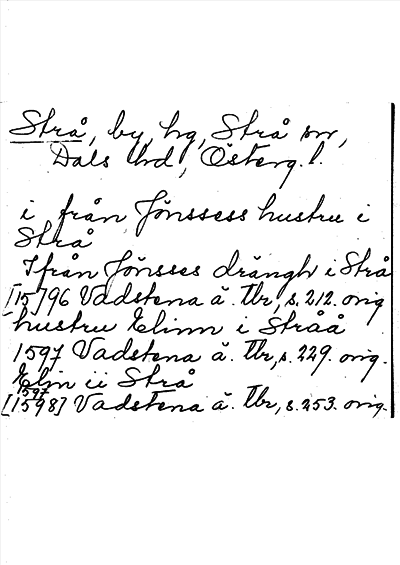 Strå, by, hg, Strå sn,
Dals hd, Österg. l.
i från Jönssess hustru i
Strå
Ifrån Jönsses drängh i Strå
[15]96 Vadstena ä. Tbr, s. 212. orig
hustru Elinn i Stråå
1597 Vadstena ä. Tbr, s. 229. orig.
Elin ii Strå
1597
[1598] Vadstena ä. Tbr, s. 253. orig.